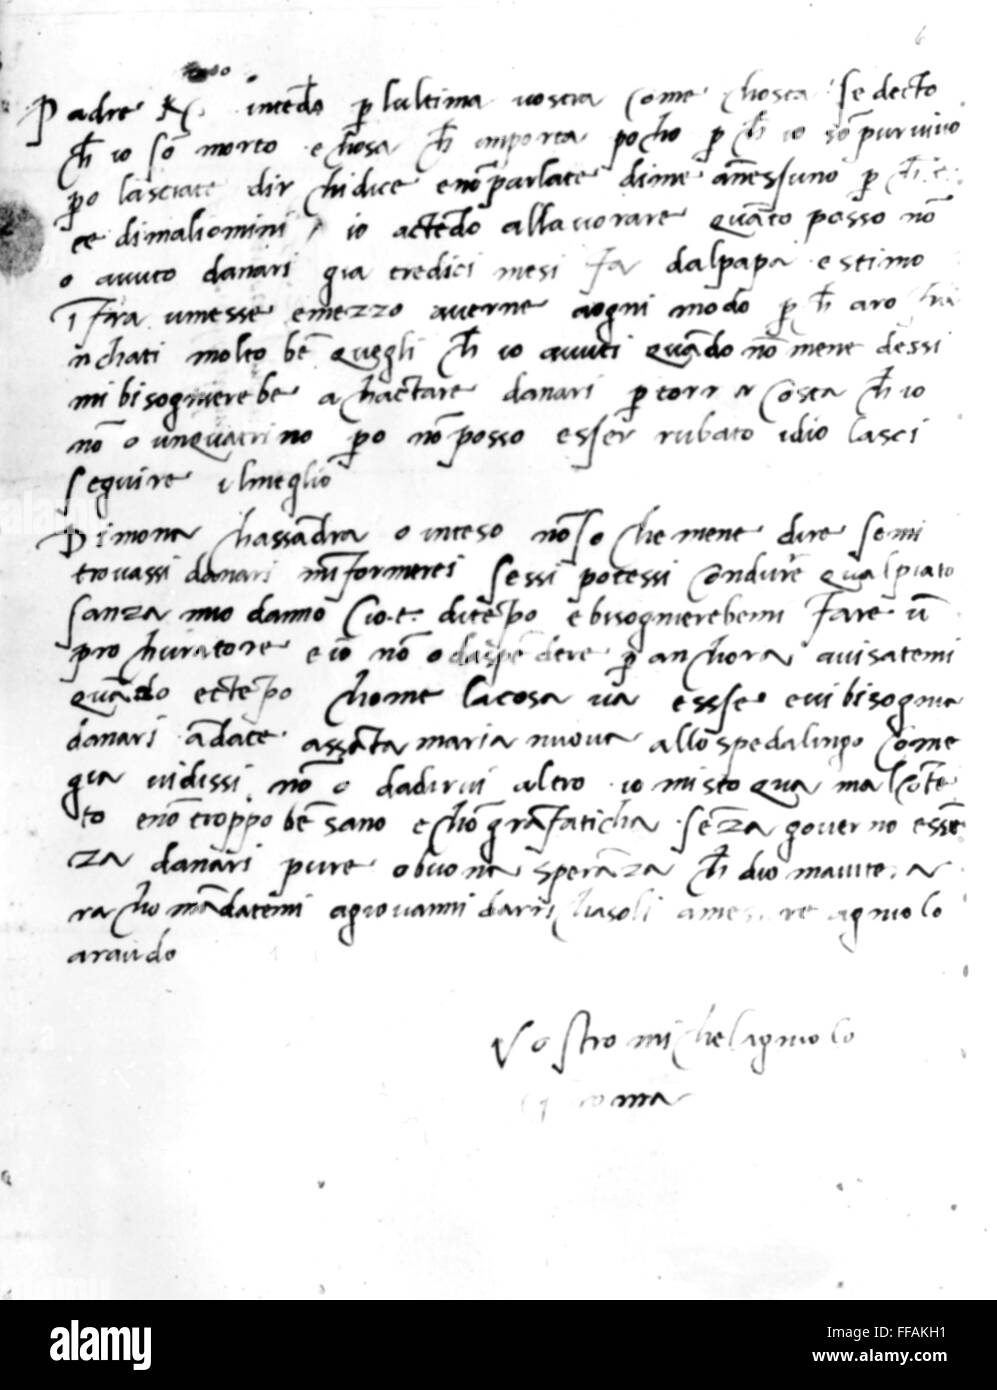 6
Padre R. intēdo p lultima vostra come chosta se decto
ch io so morto e chosa ch importa pocho p ch io sō pur vivo
po lasciate dir chi dice e nō parlate di me a nessuno p ch
ce di mali omini io actēdo a llavorare quāto posso nō
o avuto danari gia tredici mesi fa dal papa e stimo
ī fra un messe e mezzo averne a ogni modo p ch aro
nchati molto bē quegli ch io avuti quādo nō me ne dessi
mi bisognierebe achactare danari p tornar costa ch io
nō o un quatrino po nō posso esser rubato idio lasci
seguire il meglio
Di mona chassādra o inteso nō so che me ne dire se mi
trovassi danari mi īformerei se ssi potessi cōdurre qua l piato
sanza mio danno cioe di tēpo e bisognierebemi fare ū
prochuratore e io nō o da spēdere p anchora avisatemi
quādo e ctēpo chome la cosa va essse e vi bisognia
danari ādate a ssāta maria nuova allo spedalingo come
gia vi dissi nō o da dirvi altro io mi sto qua mal cōtē
to e nō troppo bē sano e chō grā faticha senza governo e ssē
za danari pure o buona sperāza ch dio m aiutera
rachomādatemi a giovanni da richasoli a messere agniolo
araldo
Vostro michelagniolo
ī roma
alamy
alamy
Image ID: FFAKH1
www.alamy.com